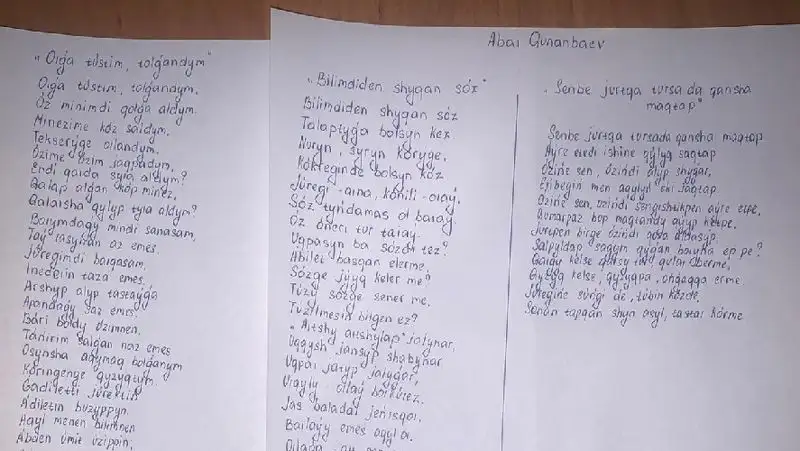 "Oıǵa tústim, tolǵandym"
Oıǵa tústim, tolǵandym,
Óz minimdi qolǵa aldym.
Minezime kóz saldym,
Tekserýge oılandym.
Ózime ózim jaqpadym,
Endi qaıda syıa aldym?
Qalap alǵan kóp minez,
Qalaısha qylyp tyıa aldym?
Boıymdaǵy mindi sanasam,
Taý tasynan az emes.
Júregimdi baıqasam,
Inedeıin taza emes.
Arshyp alyp tastaýǵa
Apandaǵy saz emes.
Bári boldy ózimnen,
Táńirim salǵan naz emes
Osynsha aqymaq bolǵanym
Kóringenge qyzyqtym.
Ǵadiletti júrektiń
Ádiletin buzyppyn.
Aqyl menen bilimnen
Ábden úmit úzippin.
Abaı Qunanbaev
"Bilimdiden shyqqan sóz"
Bilimdiden shyqqan sóz
Talaptyǵa bolsyn kez
Nuryn, syryn kórýge,
Kókireginde bolsyn kóz
Júregi - aına, kóńili - oıaý,
Sóz tyńdamas ol baıaý.
Óz óneri tur taıaý,
Uqpasyn ba sózdi tez?
Ábilet basqan elerme?
Sózge jýyq keler me?
Túzý sózge sener me,
Túzelmesin bilgen ez?
"Aıtshy-aıtshylap" jalynar,
Uǵysh jansyp shabynar
Uqpaı jatyp jalyǵar,
Uıqyly-oıaý boıkúıez.
Jas baladaı jeńisqoı,
Baılaýy emes aqyl oı.
"Senbe jurtqa tursa da qansha
maqtap"
Senbe jurtqa tursada qansha maqtap
Áýre etedi ishine qýlyq saqtap
Ózińe sen, ózińdi alyp shyǵar,
Eńbegiń men aqylyń eki jaqtap
Ózińe sen, ózińdi sengishtikpen áýre etpe,
Qumarpaz bop maqtandy aýlyp ketpe,
Jurtpen birge ózińdi qosa aldasyp
Salpyldap saǵym qýǵan boıyńa ep pe?
Qaıǵy kelse qarsy tur, qulaı berme,
Qyzyq kelse, qyzyqpa, ońǵaqqa erme
Júregińe súńgi de, túbin kózde,
Sonan tapqan shyn asyl, tastaı kórme